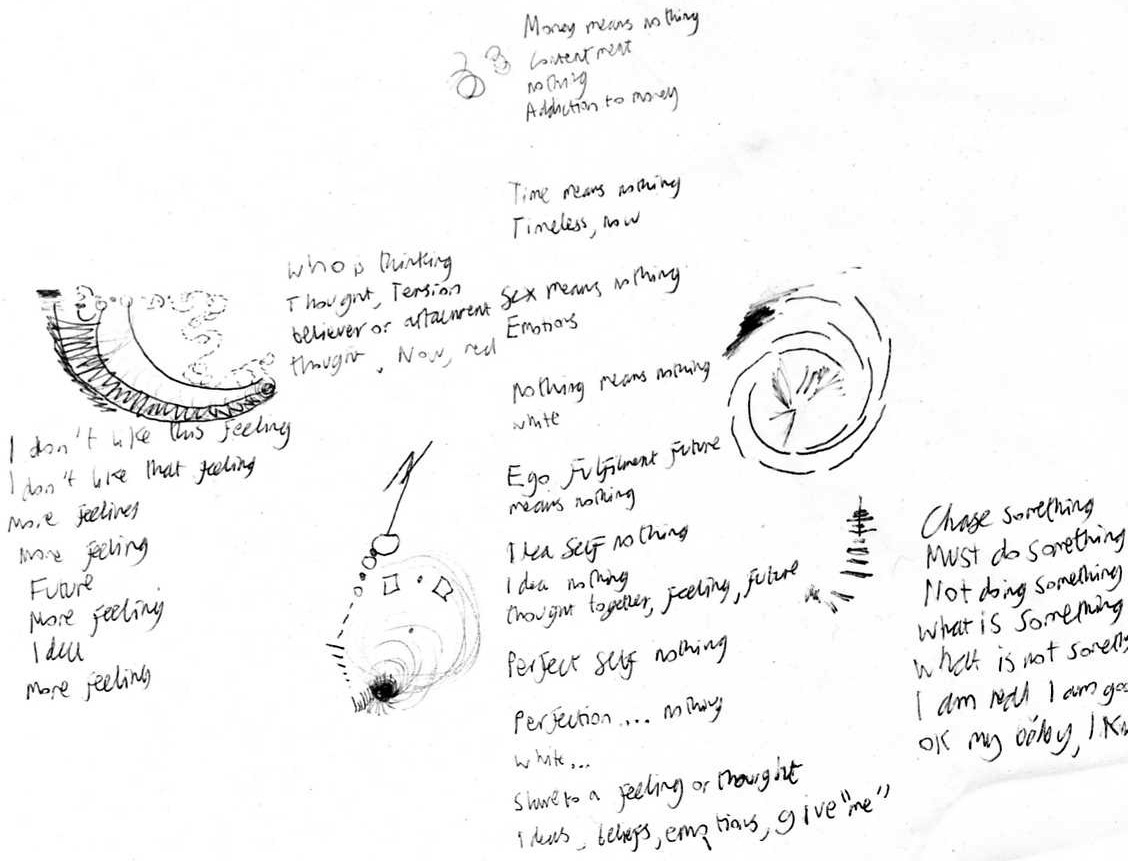 Money means nothing
Contentment
nothing
Addiction to money
Time means nothing
Timeless, now
Who is thinking
Thought, Tension
believer or attachment
thought, Now, red
Sex means nothing
Emotions
Nothing means nothing
white
Ego Fulfilment future
means nothing
Idea Self nothing
Idea nothing
thought together, feeling, future
Perfect self nothing
Perfection ... nothing
white...
Slave to a feeling or thought
Ideas, beliefs, emotions, give "me"
I don't like this feeling
I don't like that feeling
More feelings
More feeling
Future
More feeling
Idea
More feeling
Chase something
Must do something
Not doing something
What is something
What is not
I am I am
OK my